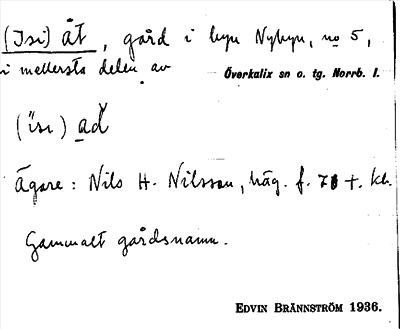 (Isi) åt, gård i byn Nybyn, no 5,
i mellersta delen av Överkalix sn o. tg. Norrb. l.
(ïsı) ad̆
Ägare: Nils H. Nilsson, häg. f. 78 t. kl.
Gammalt gårdsnamn.
EDVIN BRÄNNSTRÖM 1936.